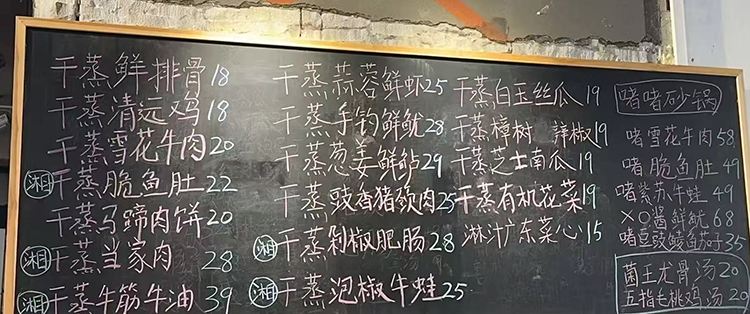 干蒸鲜排骨18
干蒸清远鸡18
干蒸雪花牛肉20
湘 干蒸脆鱼肚22
干蒸马蹄肉饼20
湘 干蒸当家肉 28
湘 干蒸牛筋牛油39
干蒸蒜蓉鲜虾25
干蒸手钓鲜鱿28
干蒸葱姜鲜鲈29
干蒸豉香猪颈肉25
湘 干蒸剁椒肥肠28
湘 干蒸泡椒牛蛙25
干蒸白玉丝瓜19
干蒸樟树 椒19
干蒸芝士南瓜19
干蒸有机花菜19
淋汁广东菜心15
啫啫砂锅
啫雪花牛肉58
啫脆鱼肚49
啫紫苏牛蛙49
XO酱鲜鱿68
啫豆豉鲮鱼茄子35
菌王龙骨汤20
五指毛桃鸡汤20